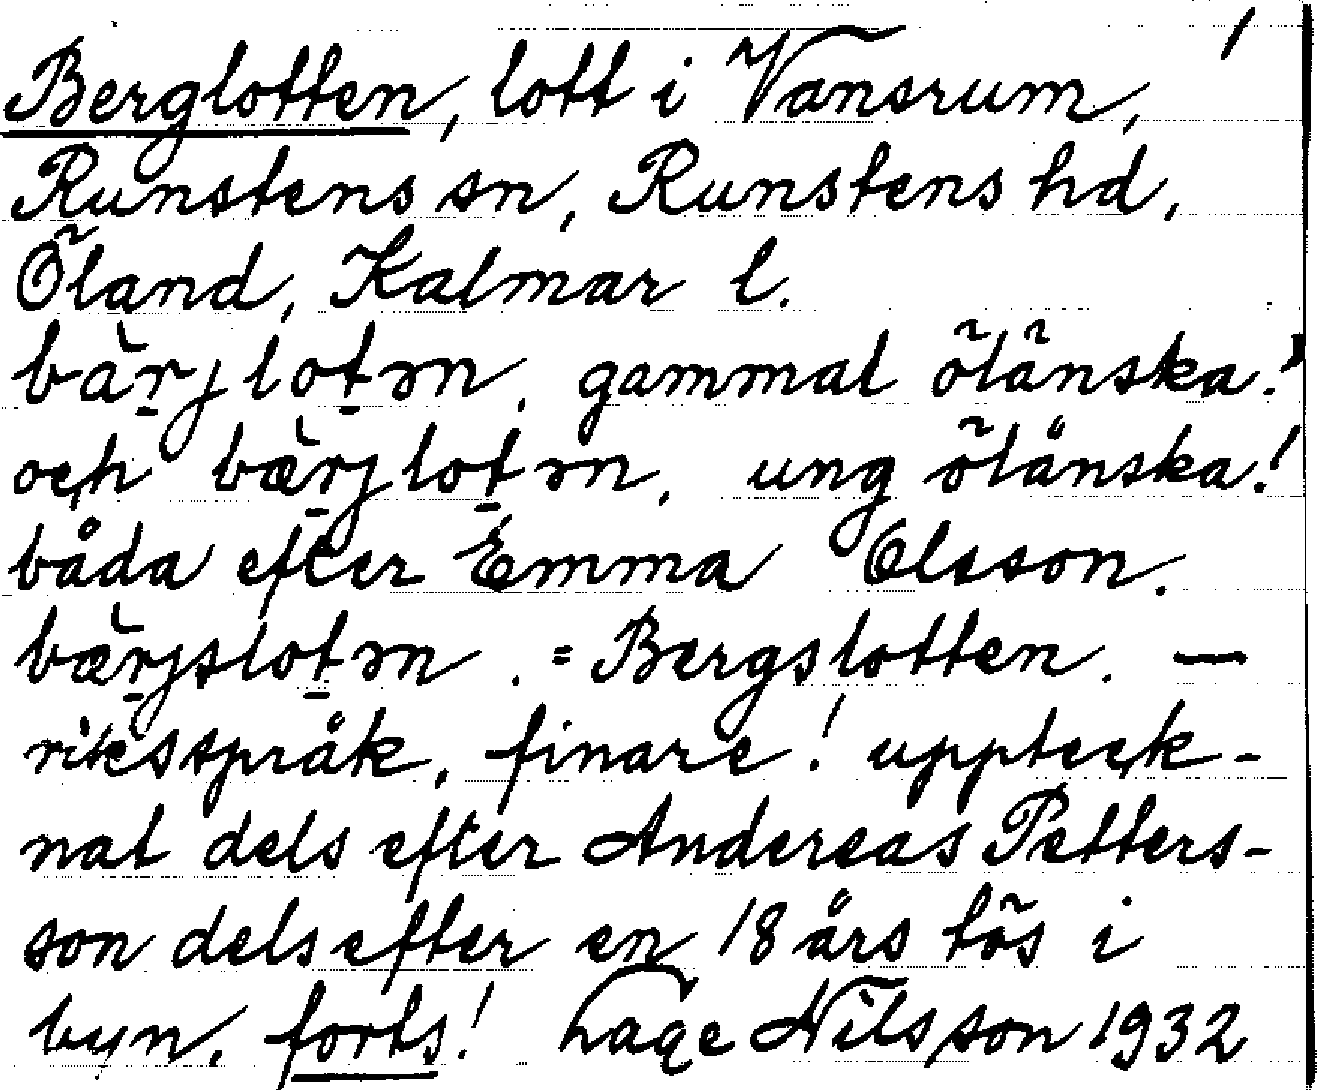 Berglotten, lott i Vansrum,
Runstens sn, Runstens hd,
Öland, Kalmar l.
bàrjlotɘn. gammal öländska!
och bæ̀rjlotɘn. ung öländska!
båda efter Emma Olsson.
bæ̀rjslotɘn. = Bergslotten. —
riksspråk, finare! uppteck-
nat dels efter Andereas Petters-
son dels efter en 18 års tös i
byn. forts! Lage Nilsson 1932